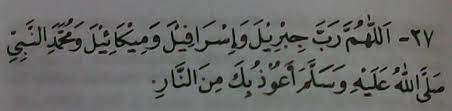 ٢٧- اَللّٰهُمَّ رَبَّ جِبْرِيْلَ وَإِسْرَافِيْلَ وَمِيْكَائِيْلَ وَمُحَمَّدِ النَّبِيِّ
صَلَّى اللهُ عَلَيْهِ وَسَلَّمَ أَعُوْذُ بِكَ مِنَ النَّارِ.